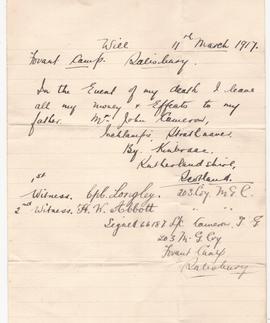 Will 11th March 1917.
Fovant Camp. Salisbury.
In the Event of my death I leave
all my money & Effects to my
father. Mr John Cameron,
Strathnaver
By. Kinbrace.
Sutherlandshire,
Scotland.
1st
Witness. Cpl. Longley. 203 Coy M.G.C.
2nd Witness. H. W. Abbott " " "
Signed 66187 Cameron, J. G
203 M. G Coy
Fovant Camp
Salisbury